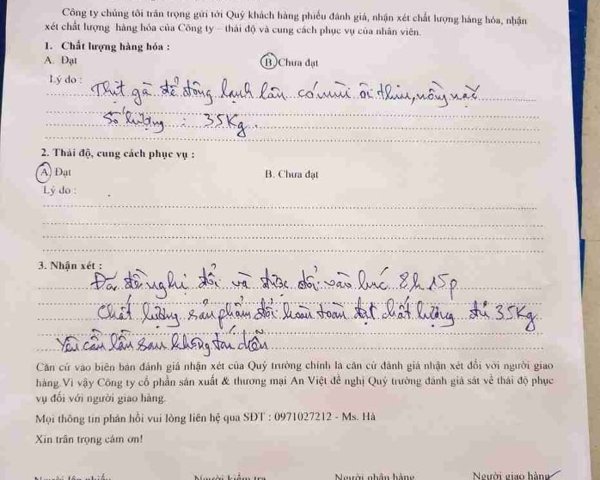 Công ty chúng tôi trân trọng gửi tới Quý khách hàng phiếu đánh giá, nhận xét chất lượng hàng hóa, nhận
xét chất lượng hàng hóa của Công ty – thái độ và cung cách phục vụ của nhân viên.
1. Chất lượng hàng hóa :
A. Đạt B. Chưa đạt
Lý do : Thịt gà để đông lạnh lâu có mùi ôi thiu, nồng nặc
Số lượng : 35Kg.
2. Thái độ, cung cách phục vụ :
A. Đạt B. Chưa đạt
Lý do :
3. Nhận xét :
Đã đề nghị đổi và được đổi vào lúc 8h 15p
Chất lượng sản phẩm đổi hoàn toàn đạt chất lượng đủ 35Kg.
Yêu cầu lần sau không tái diễn
Căn cứ vào biên bản đánh giá nhận xét của Quý trường chính là căn cứ đánh giá nhận xét đối với người giao
hàng.Vì vậy Công ty cổ phần sản xuất & thương mại An Việt đề nghị Quý trường đánh giá sát về thái độ phục
vụ đối với người giao hàng.
Mọi thông tin phản hồi vui lòng liên hệ qua SĐT : 0971027212 - Ms. Hà
Xin trân trọng cảm ơn!
Người lập phiếu Người kiểm tra Người nhận hàng Người giao hàng